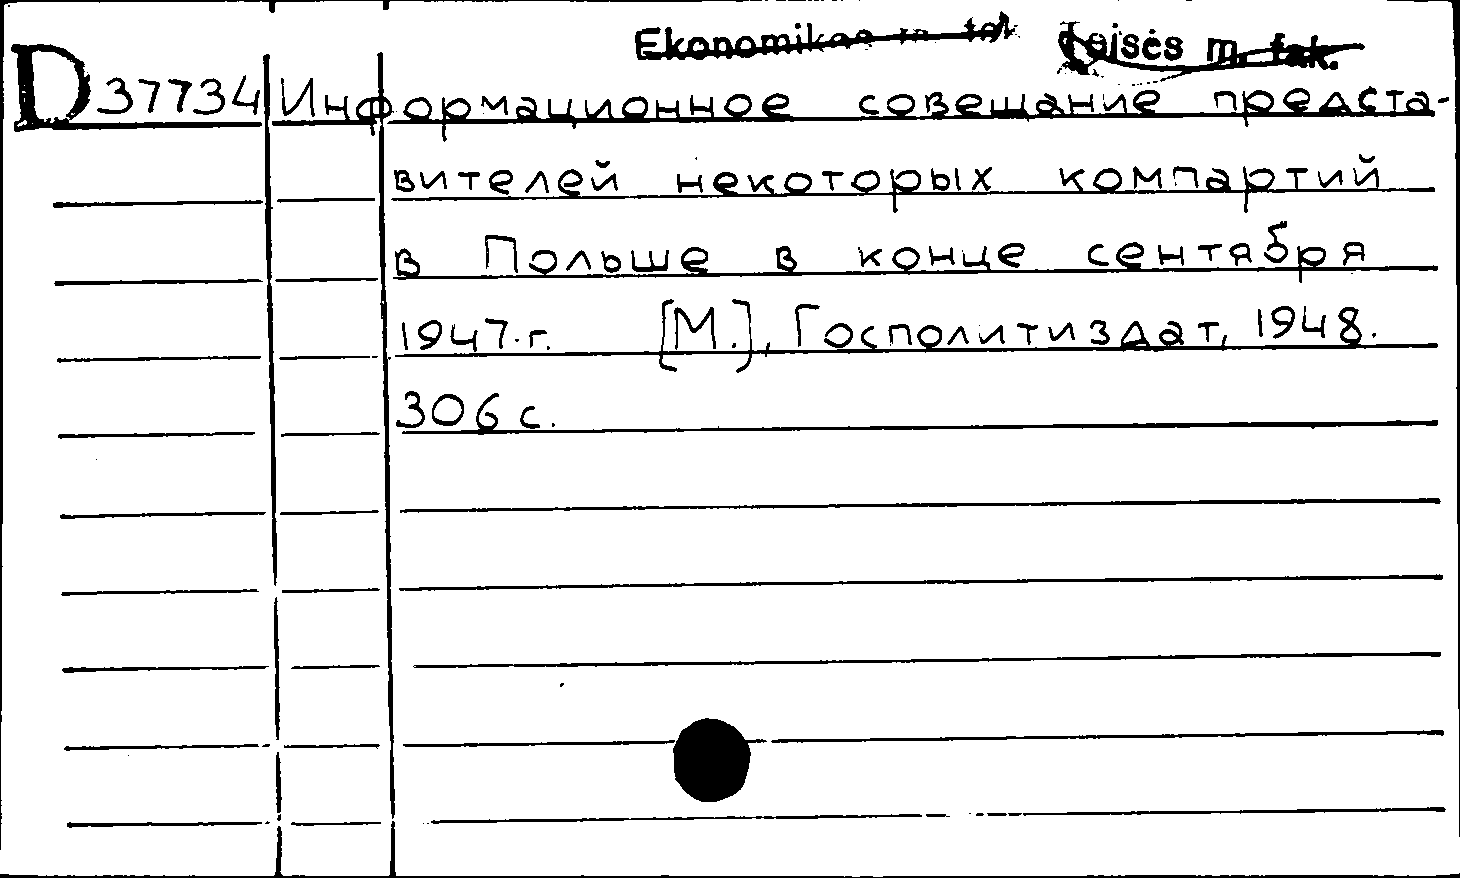 Ekonomikos m. fak. Teisės m. fak.
D 37734 Информационное совещание предста-
вителей некоторых компартий
в Польше в конце сентября
1947.г. [М.], Госполитиздат, 1948.
306 с.